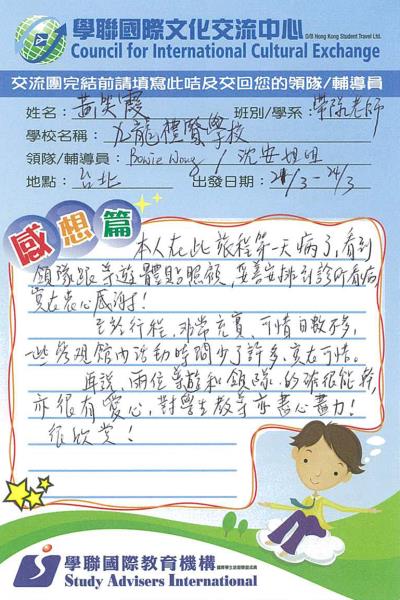 學聯國際文化交流中心
D/B Hong Kong Student Travel Ltd.
Council for International Cultural Exchange
交流團完結前請填寫此咭及交回您的領隊/輔導員
姓名: 黃笑霞 班別/學系: 帶隊老師
學校名稱: 九龍禮賢學校
領隊/輔導員: Bowie Wong / 沈安姐姐
地點: 台北 出發日期: 21/3-24/3
感想篇
本人在此旅程第一天病了,看到
領隊跟導遊體貼照顧,妥善安排到診所看病,
實在衷心感謝!
至於行程,非常充實,可惜日數不多,
一些參觀館內活動時間少了許多,實在可惜。
再說,兩位導遊和領隊,的確很能幹,
亦很有愛心,對學生教導亦盡心盡力!
很欣賞!
學聯國際教育機構
國際學生旅遊聯盟成員
Study Advisers International